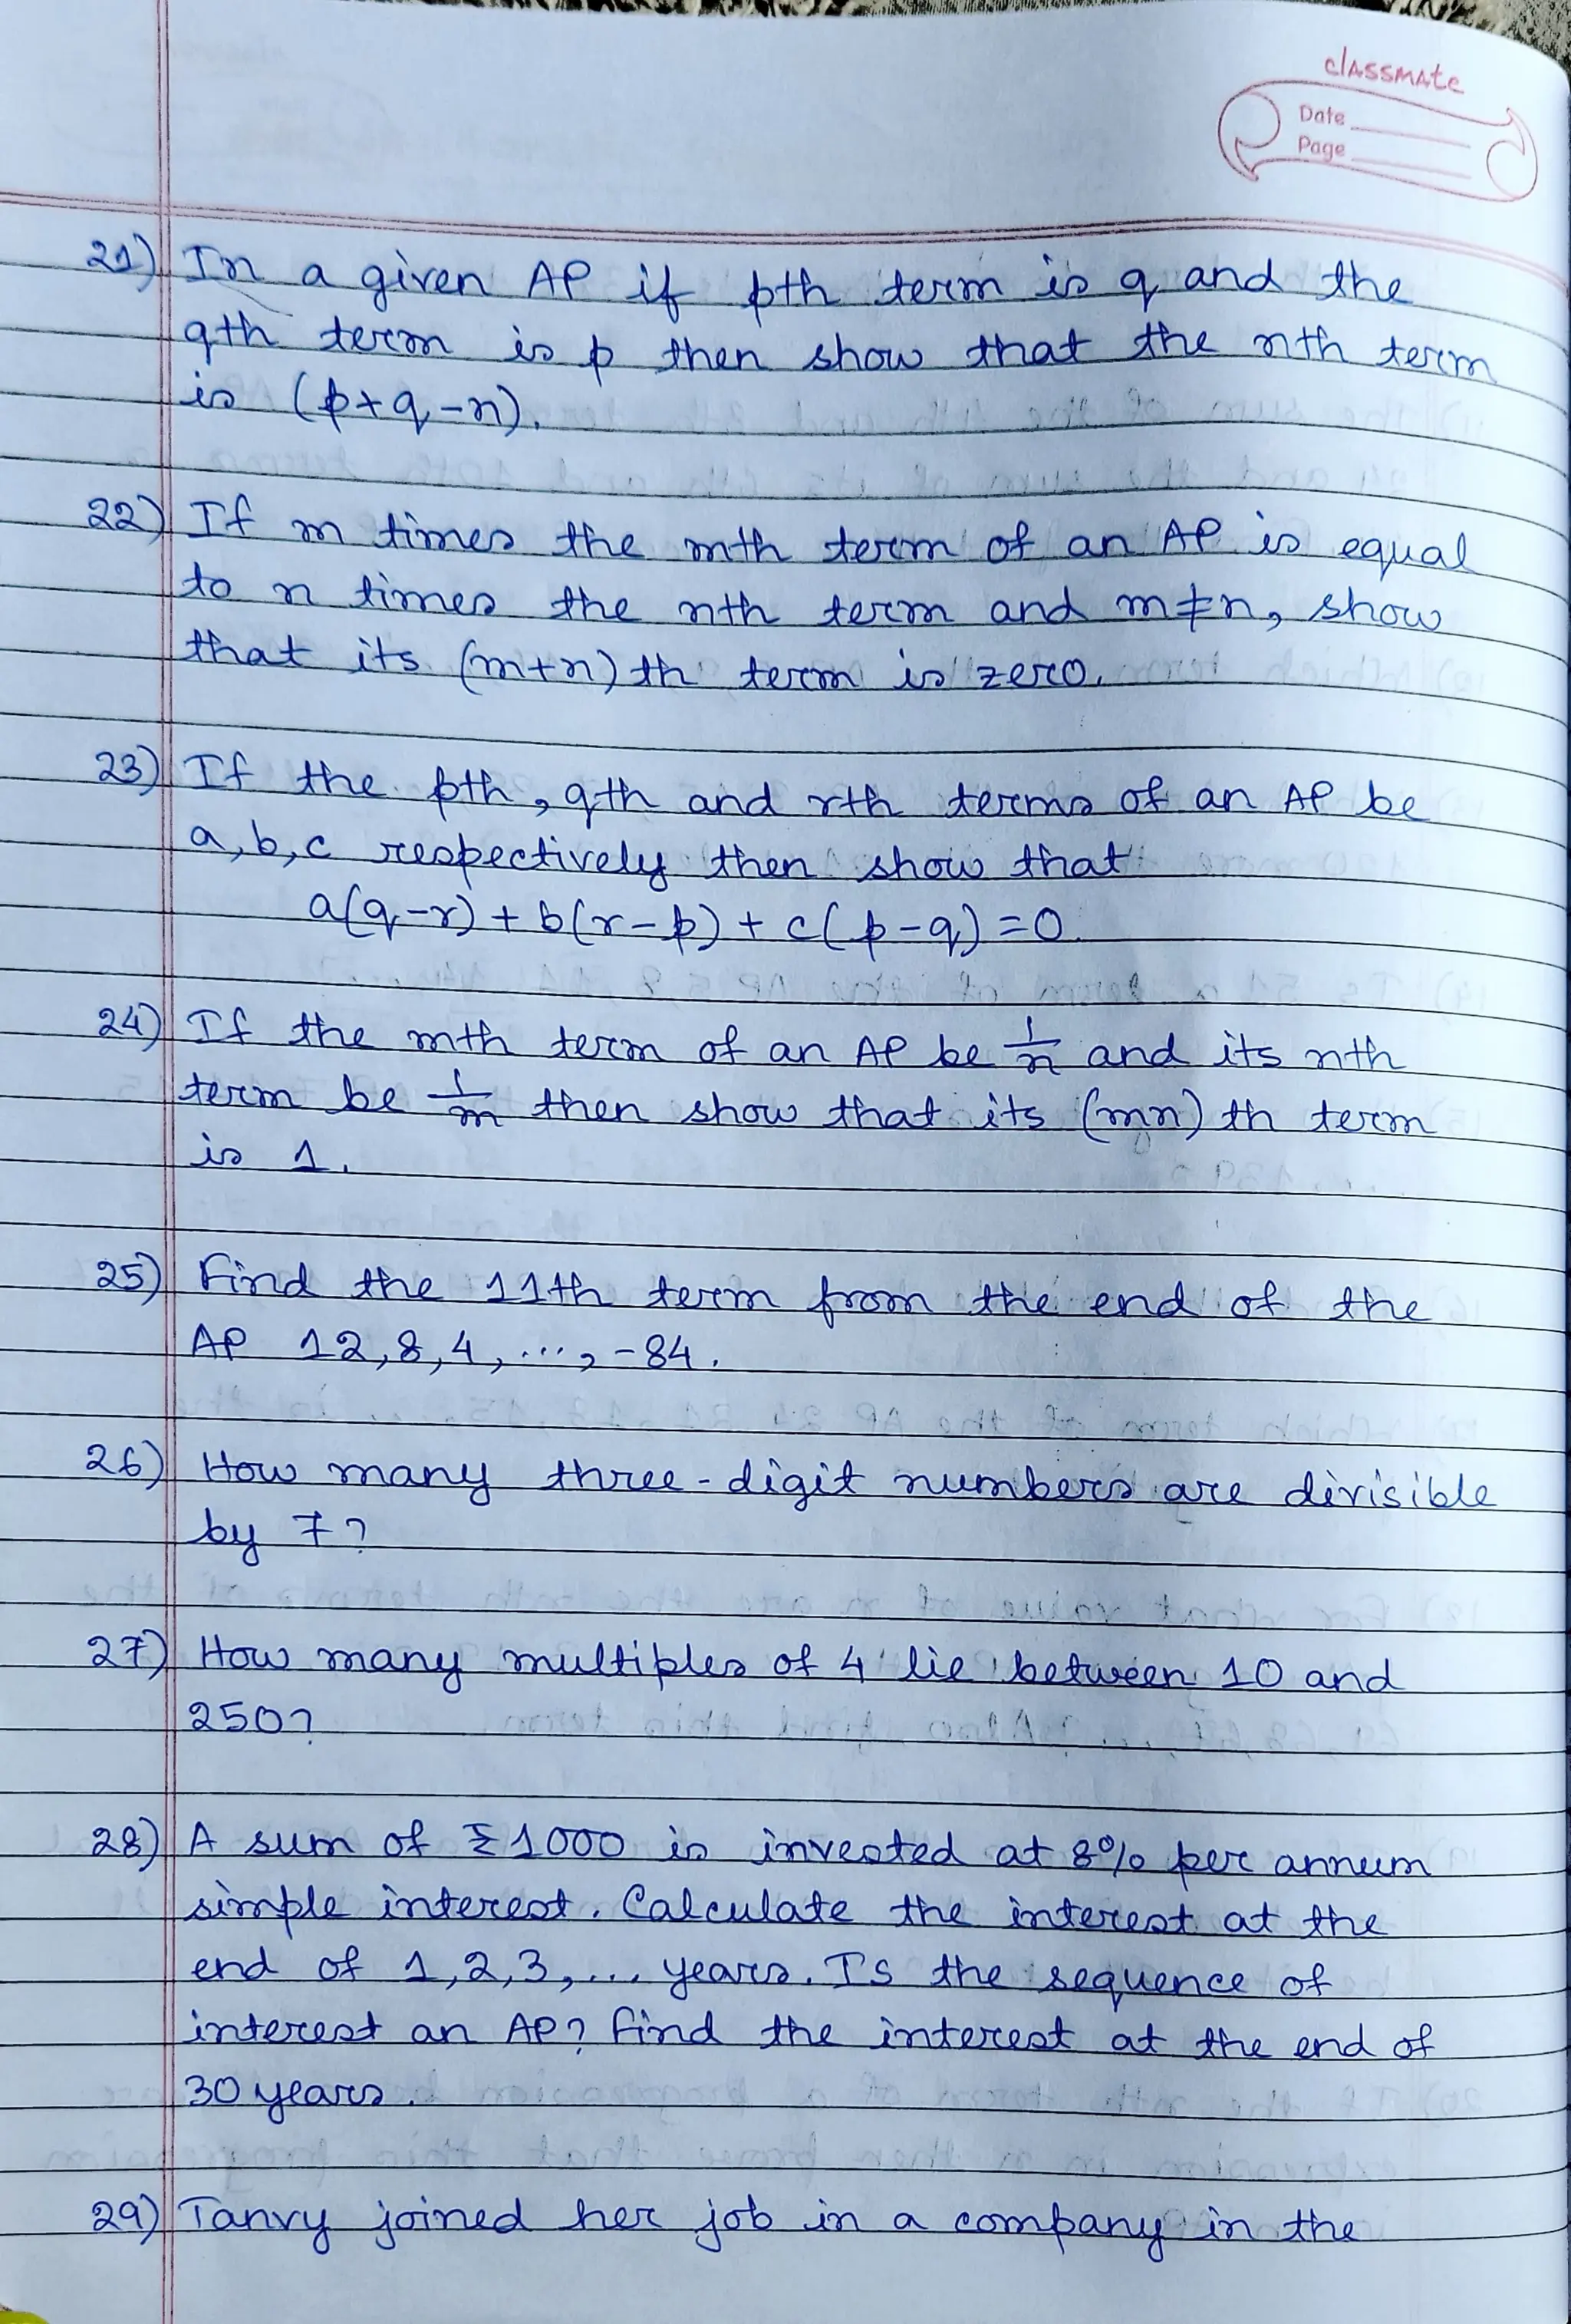 classmate
Date
Page
21) In a given AP if pth term is q and the
qth term is p then show that the nth term
is (p+q-n).
22) If m times the mth term of an AP is equal
to n times the nth term and m≠n, show
that its (m+n)th term is zero.
23) If the pth, qth and rth terms of an AP be
a, b, c respectively then show that
a(q-r) + b(r-p) + c(p-q) = 0.
24) If the mth term of an AP be 1/n and its nth
term be 1/m then show that its (mn)th term
is 1.
25) Find the 11th term from the end of the
AP 12, 8, 4, ..., -84.
26) How many three-digit numbers are divisible
by 7?
27) How many multiples of 4 lie between 10 and
250?
28) A sum of ₹1000 is invested at 8% per annum
simple interest. Calculate the interest at the
end of 1, 2, 3, ... years. Is the sequence of
interest an AP? Find the interest at the end of
30 years.
29) Tanvy joined her job in a company in the